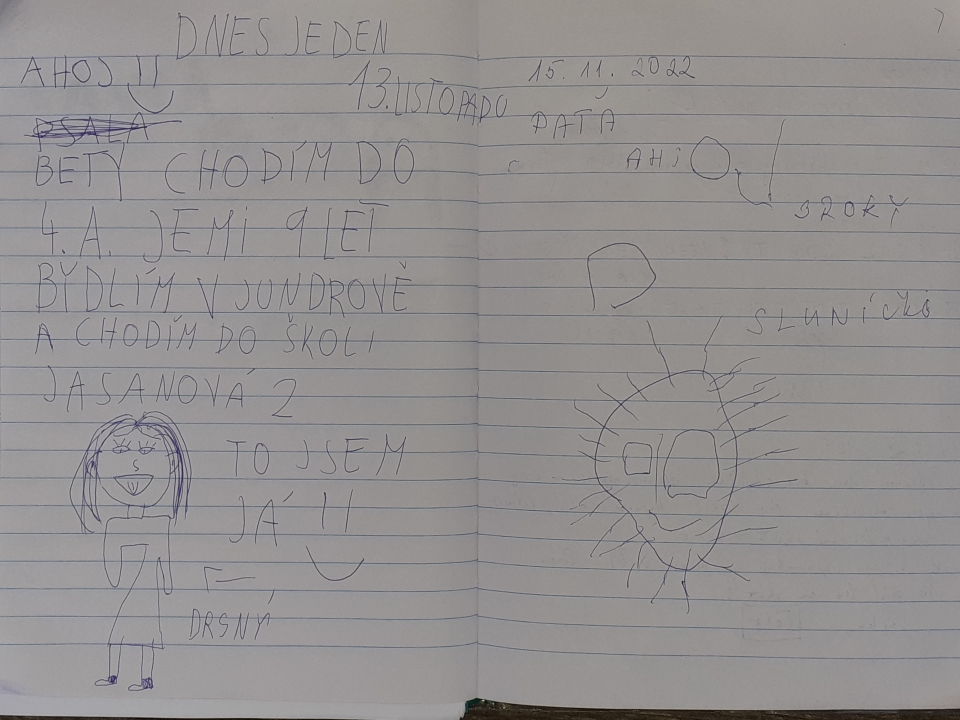 DNES JEDEN
AHOJ !!
13. LISTOPADU
PSALA
BETY CHODÍM DO
4. A. JEMI 9 LET
BÝDLÍM V JUNDROVĚ
A CHODÍM DO ŠKOLI
JASANOVÁ 2
TO JSEM
JÁ !!
DRSNÝ
15. 11. 2022
PÁŤA
AHJ OJ
SLUNÍČKO